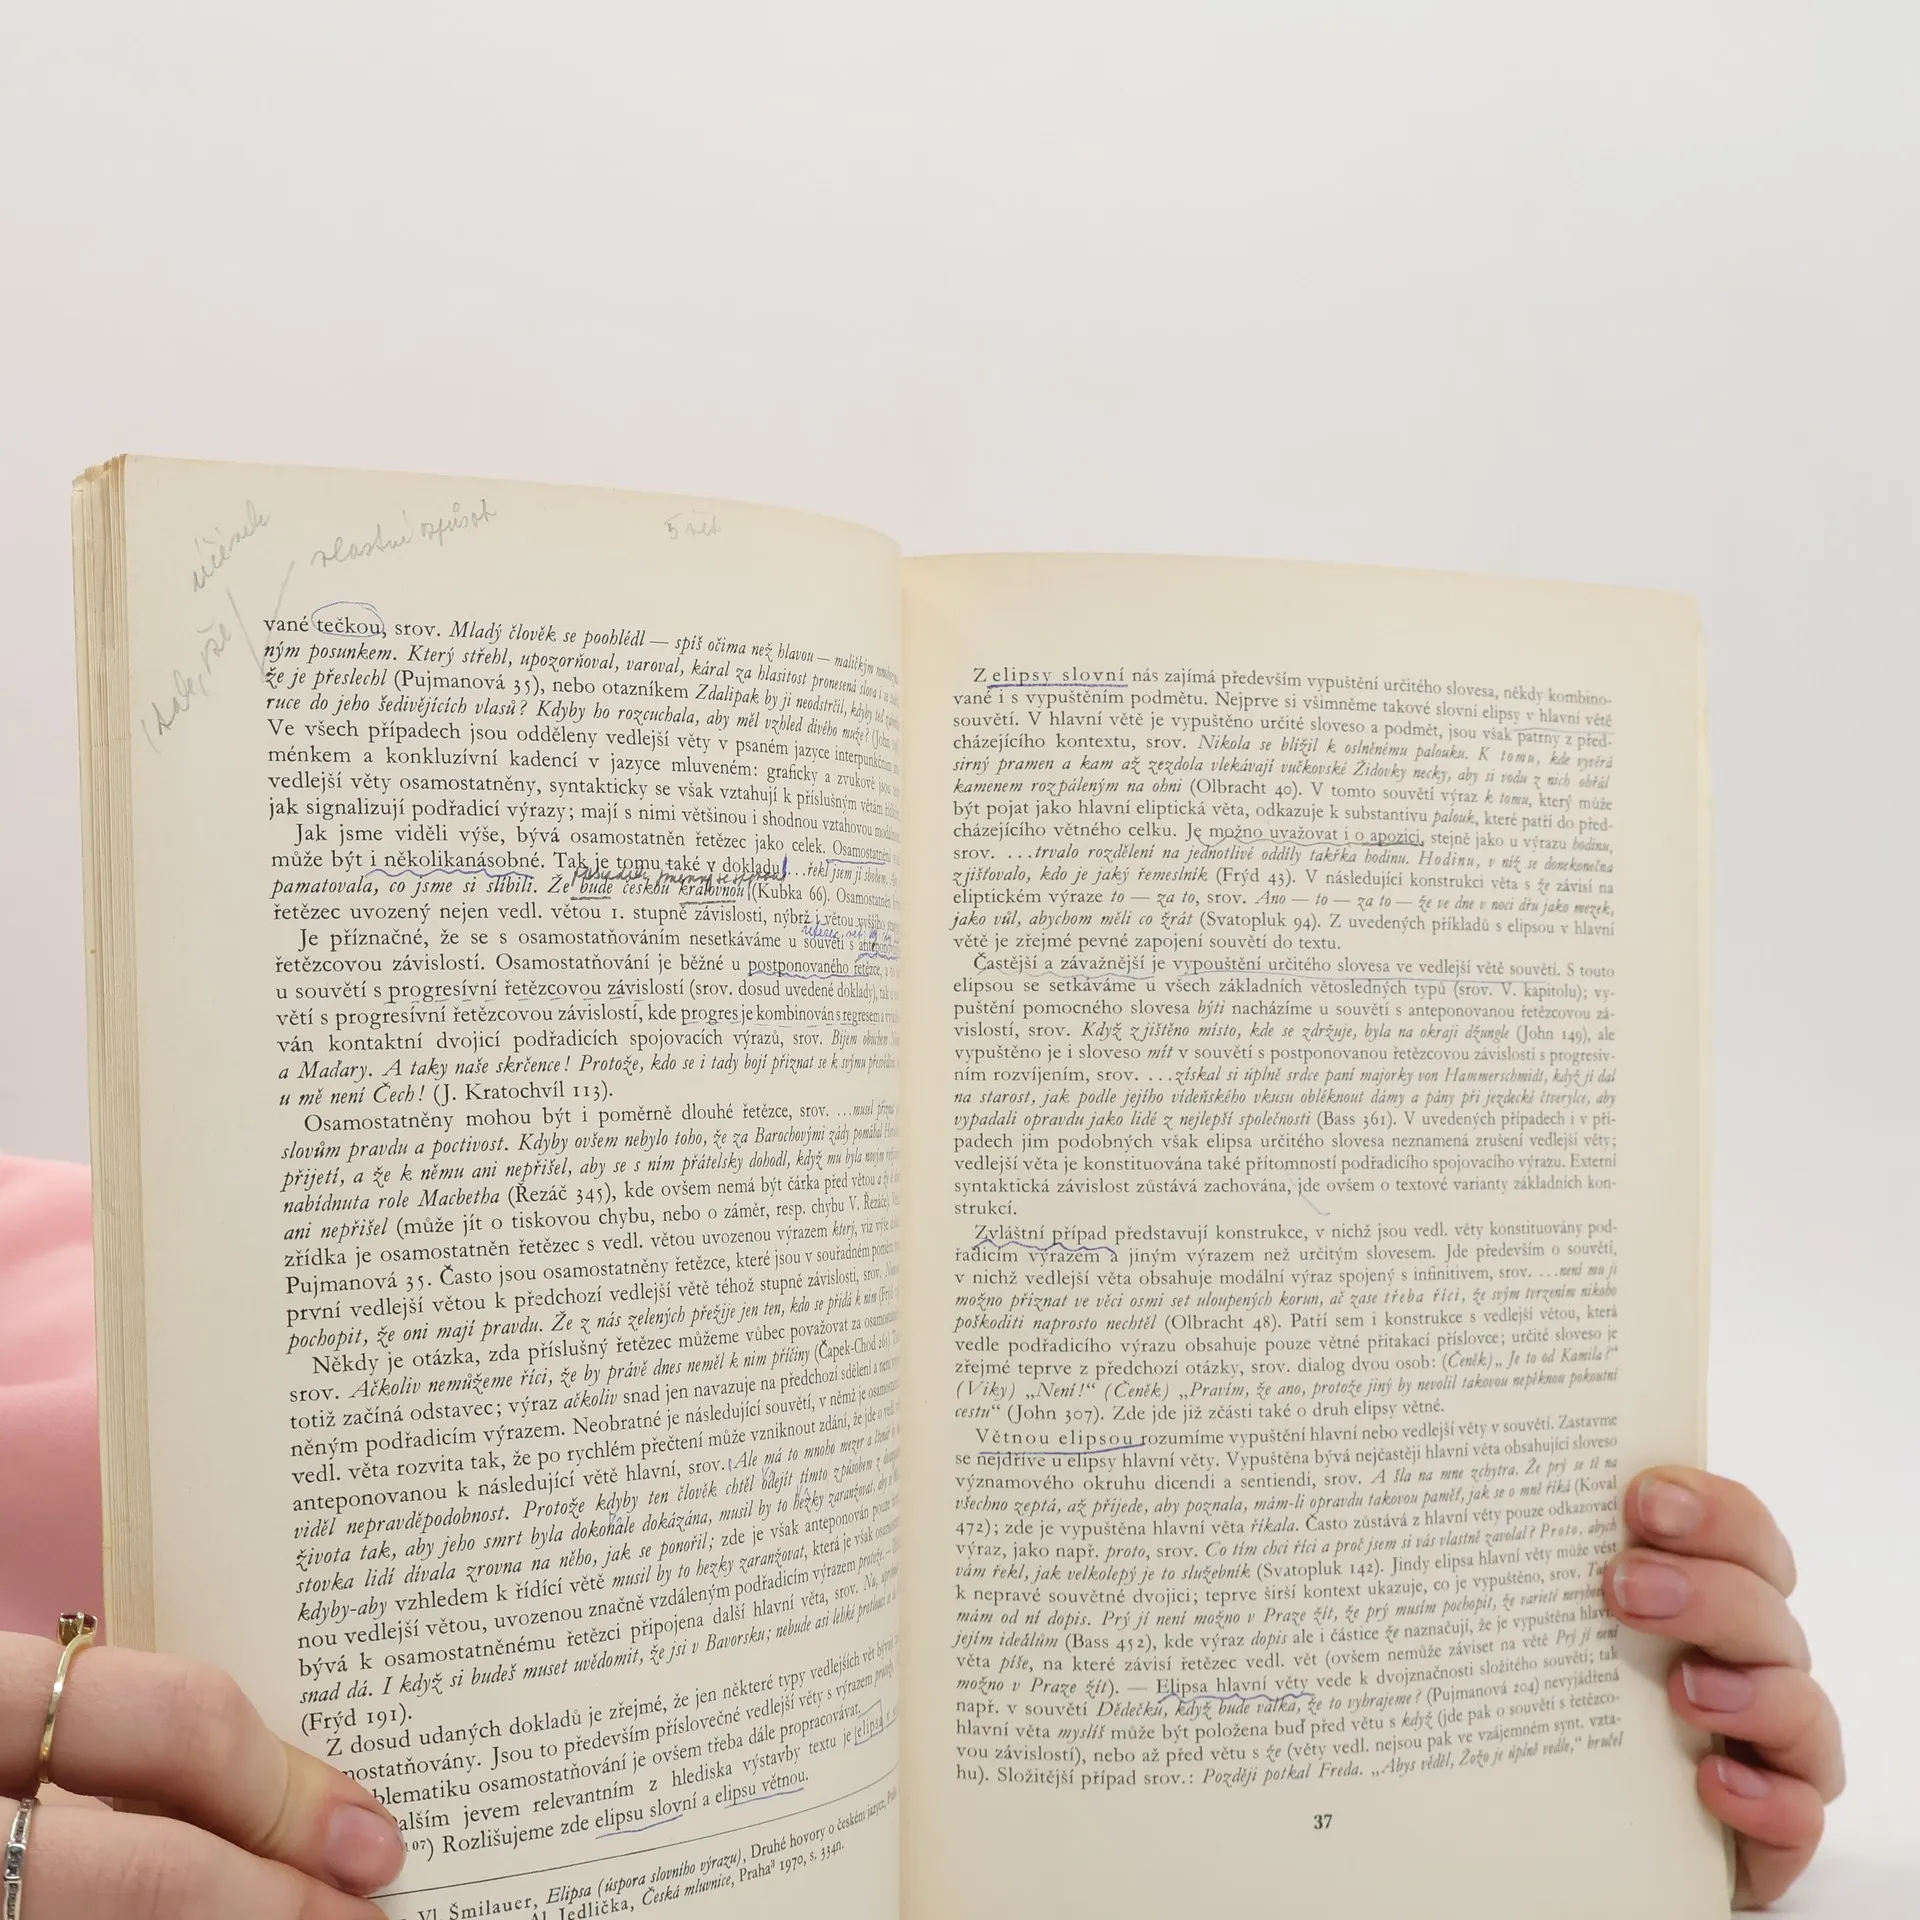 účinek
vlastní způsob
5 vět
vané tečkou, srov. Mladý člověk se poohlédl — spíš očima než hlavou — maličkým
ným posunkem. Který střehl, upozorňoval, varoval, káral za hlasitost pronesená slova i se
že je přeslechl (Pujmanová 35), nebo otazníkem Zdalipak by ji neodstrčil, kdyby teď
ruce do jeho šedivějících vlasů? Kdyby ho rozcuchala, aby měl vzhled divého muže? (John
Ve všech případech jsou odděleny vedlejší věty v psaném jazyce interpunkčním
ménkem a konkluzívní kadencí v jazyce mluveném: graficky a zvukově jsou
vedlejší věty osamostatněny, syntakticky se však vztahují k příslušným větám
jak signalizují podřadicí výrazy; mají s nimi většinou i shodnou vztahovou
Jak jsme viděli výše, bývá osamostatněn řetězec jako celek. Osamostatnění
může být i několikanásobné. Tak je tomu také v dokladu ...řekl jsem jí sbohem.
pamatovala, co jsme si slíbili. Že bude českou královnou (Kubka 66). Osamostatněn
řetězec uvozený nejen vedl. větou 1. stupně závislosti, nýbrž i větou vyššího
Je příznačné, že se s osamostatňováním nesetkáváme u souvětí s
řetězcovou závislostí. Osamostatňování je běžné u postponovaného řetězce,
u souvětí s progresívní řetězcovou závislostí (srov. dosud uvedené doklady), tak
větí s progresívní řetězcovou závislostí, kde progres je kombinován s regresem
ván kontaktní dvojicí podřadicích spojovacích výrazů, srov. Bijem
a Maďary. A taky naše skrčence! Protože, kdo se i tady bojí přiznat se k svýmu
u mě není Čech! (J. Kratochvíl 113).
Osamostatněny mohou být i poměrně dlouhé řetězce, srov. ...musel
slovům pravdu a poctivost. Kdyby ovšem nebylo toho, že za Barochovými zády pomáhal
přijetí, a že k němu ani nepřišel, aby se s ním přátelsky dohodl, když mu byla
nabídnuta role Macbetha (Řezáč 345), kde ovšem nemá být čárka před větou a že k
ani nepřišel (může jít o tiskovou chybu, nebo o záměr, resp. chybu V. Řezáče).
zřídka je osamostatněn řetězec s vedl. větou uvozenou výrazem který, viz výše
Pujmanová 35. Často jsou osamostatněny řetězce, které jsou v souřadném poměru
první vedlejší větou k předchozí vedlejší větě téhož stupně závislosti, srov.
pochopit, že oni mají pravdu. Že z nás zelených přežije jen ten, kdo se přidá k nim
Někdy je otázka, zda příslušný řetězec můžeme vůbec považovat za
srov. Ačkoliv nemůžeme říci, že by právě dnes neměl k nim příčiny (Čapek-Chod 261).
totiž začíná odstavec; výraz ačkoliv snad jen navazuje na předchozí sdělení a není
něným podřadicím výrazem. Neobratné je následující souvětí, v němž je
vedl. věta rozvita tak, že po rychlém přečtení může vzniknout zdání, že jde o vedl.
anteponovanou k následující větě hlavní, srov. Ale má to mnoho mezer a
viděl nepravděpodobnost. Protože kdyby ten člověk chtěl odejít tímto způsobem z
života tak, aby jeho smrt byla dokonale dokázána, musil by to hezky zaranžovat, aby
stovka lidí dívala zrovna na něho, jak se ponořil; zde je však anteponován pouze
kdyby-aby vzhledem k řídící větě musil by to hezky zaranžovat, která je však
nou vedlejší větou, uvozenou značně vzdáleným podřadicím výrazem protože. —
bývá k osamostatněnému řetězci připojena další hlavní věta, srov. No,
snad dá. I když si budeš muset uvědomit, že jsi v Bavorsku; nebude asi lehké
(Frýd 191).
Z dosud udaných dokladů je zřejmé, že jen některé typy vedlejších vět bývají
mostatňovány. Jsou to především příslovečné vedlejší věty s výrazem
blematiku osamostatňování je ovšem třeba dále propracovávat.
alším jevem relevantním z hlediska výstavby textu je elipsa
107) Rozlišujeme zde elipsu slovní a elipsu větnou.
Vl. Šmilauer, Elipsa (úspora slovního výrazu), Druhé hovory o českém jazyce,
Al. Jedlička, Česká mluvnice, Praha³ 1970, s. 334n.
Z elipsy slovní nás zajímá především vypuštění určitého slovesa, někdy kombino-
vané i s vypuštěním podmětu. Nejprve si všimněme takové slovní elipsy v hlavní větě
souvětí. V hlavní větě je vypuštěno určité sloveso a podmět, jsou však patrny z před-
cházejícího kontextu, srov. Nikola se blížil k oslněnému palouku. K tomu, kde vyvěrá
sirný pramen a kam až zezdola vlekávají vučkovské Židovky necky, aby si vodu z nich ohřál
kamenem rozpáleným na ohni (Olbracht 40). V tomto souvětí výraz k tomu, který může
být pojat jako hlavní eliptická věta, odkazuje k substantivu palouk, které patří do před-
cházejícího větného celku. Je možno uvažovat i o apozici, stejně jako u výrazu hodinu,
srov. ...trvalo rozdělení na jednotlivé oddíly takřka hodinu. Hodinu, v níž se donekonečna
zjišťovalo, kdo je jaký řemeslník (Frýd 43). V následující konstrukci věta s že závisí na
eliptickém výraze to — za to, srov. Ano — to — za to — že ve dne v noci dřu jako mezek,
jako vůl, abychom měli co žrát (Svatopluk 94). Z uvedených příkladů s elipsou v hlavní
větě je zřejmé pevné zapojení souvětí do textu.
Častější a závažnější je vypouštění určitého slovesa ve vedlejší větě souvětí. S touto
elipsou se setkáváme u všech základních větosledných typů (srov. V. kapitolu); vy-
puštění pomocného slovesa býti nacházíme u souvětí s anteponovanou řetězcovou zá-
vislostí, srov. Když zjištěno místo, kde se zdržuje, byla na okraji džungle (John 149), ale
vypuštěno je i sloveso mít v souvětí s postponovanou řetězcovou závislostí s progresiv-
ním rozvíjením, srov. ...získal si úplně srdce paní majorky von Hammerschmidt, když jí dal
na starost, jak podle jejího vídeňského vkusu obléknout dámy a pány při jezdecké čtverylce, aby
vypadali opravdu jako lidé z nejlepší společnosti (Bass 361). V uvedených případech i v pří-
padech jim podobných však elipsa určitého slovesa neznamená zrušení vedlejší věty;
vedlejší věta je konstituována také přítomností podřadicího spojovacího výrazu. Externí
syntaktická závislost zůstává zachována, jde ovšem o textové varianty základních kon-
strukcí.
Zvláštní případ představují konstrukce, v nichž jsou vedl. věty konstituovány pod-
řadicím výrazem a jiným výrazem než určitým slovesem. Jde především o souvětí,
v nichž vedlejší věta obsahuje modální výraz spojený s infinitivem, srov. ...není mu ji
možno přiznat ve věci osmi set uloupených korun, ač zase třeba říci, že svým tvrzením nikoho
poškoditi naprosto nechtěl (Olbracht 48). Patří sem i konstrukce s vedlejší větou, která
vedle podřadicího výrazu obsahuje pouze větné přitakací příslovce; určité sloveso je
zřejmé teprve z předchozí otázky, srov. dialog dvou osob: (Čeněk) „Je to od Kamila?“
(Viky) „Není!“ (Čeněk) „Pravím, že ano, protože jiný by nevolil takovou nepěknou pokoutní
cestu“ (John 307). Zde jde již zčásti také o druh elipsy větné.
Větnou elipsou rozumíme vypuštění hlavní nebo vedlejší věty v souvětí. Zastavme
se nejdříve u elipsy hlavní věty. Vypuštěna bývá nejčastěji hlavní věta obsahující sloveso
významového okruhu dicendi a sentiendi, srov. A šla na mne zchytra. Že prý se tě na
všechno zeptá, až přijede, aby poznala, mám-li opravdu takovou paměť, jak se o mně říká (Koval
472); zde je vypuštěna hlavní věta říkala. Často zůstává z hlavní věty pouze odkazovací
výraz, jako např. proto, srov. Co tím chci říci a proč jsem si vás vlastně zavolal? Proto, abych
vám řekl, jak velkolepý je to služebník (Svatopluk 142). Jindy elipsa hlavní věty může vést
k nepravé souvětné dvojici; teprve širší kontext ukazuje, co je vypuštěno, srov.
mám od ní dopis. Prý jí není možno v Praze žít, že prý musím pochopit, že varieté
jejím ideálům (Bass 452), kde výraz dopis ale i částice že naznačují, že je vypuštěna hlavní
věta píše, na které závisí řetězec vedl. vět (ovšem nemůže záviset na větě Prý jí není
možno v Praze žít). — Elipsa hlavní věty vede k dvojznačnosti složitého souvětí; tak
např. v souvětí Dědečku, když bude válka, že to vyhrajeme? (Pujmanová 204) nevyjádřená
hlavní věta myslíš může být položena buď před větu s když (jde pak o souvětí s řetězco-
vou závislostí), nebo až před větu s že (věty vedl. nejsou pak ve vzájemném synt. vzta-
hu). Složitější případ srov.: Později potkal Freda. „Abys věděl, Žožo je úplně vedle,“ bručel
37